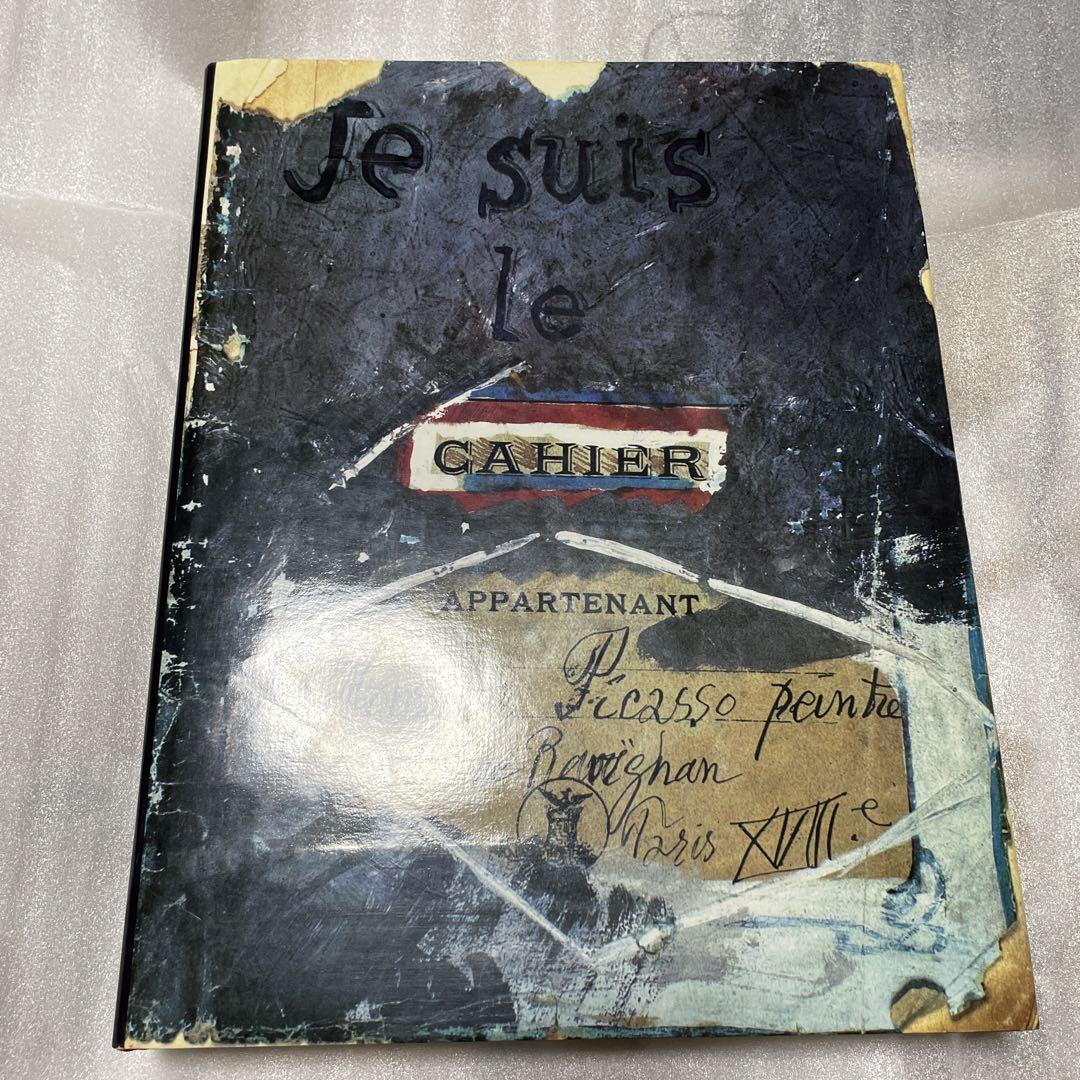 Je suis
le
CAHIER
APPARTENANT
Picasso peintre
Ravighan
Paris XVIII.e